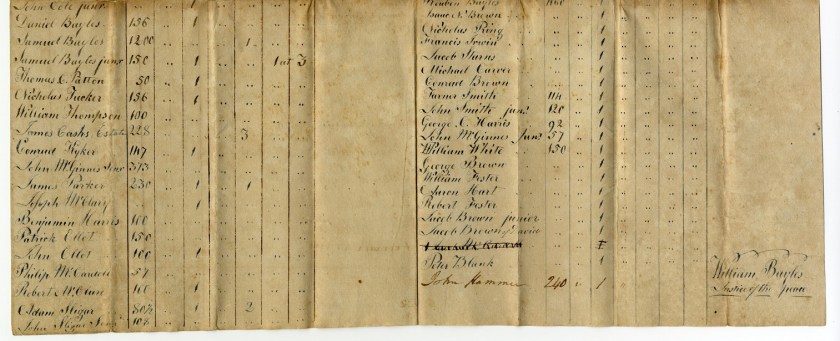 John Cole junr " " 1 " " " "
Daniel Bayles 156 " 1 " " " "
Samuel Bayles 1200 " " " 1 " "
Samuel Bayles junr 150 " 1 " " 1 ut 3
Thomas C. Patton 50 " 1 " " " "
Nicholas Tucker 136 " 1 " " " "
William Thompson 100 " " " " " "
James Cashs Estate 228 " " " 3 " "
Conrad Kyker 147 " 1 " " " "
John McGinnes Senr 373 " " " " " "
James Parker 230 " 1 " 1 " "
Joseph McClary " " 1 " " " "
Benjamin Harris 100 " " " " " "
Patrick Ellot 150 " " " " " "
John Ellot 100 " 1 " " " "
Philip 57 " " " " " "
Robert 100 " 1 " " " "
Adam Sligar " " " 2 " "
John Sligar Senr 108 " " " " " "
Reuben Bayles 1
Isaac N. Brown " " 1
Nicholas Ring " " 1
Francis " " 1
Jacob Starns " " 1
Michael Carver " " 1
Conrad Brown " " 1
Turner Smith 114 " 1
John Smith junr 120 " 1
George C. Harris 92 " 1
John McGinnes Junr 57 " 1
William White 150 " 1
George Brown " " 1
William Fester " " 1
Aaron Hart " " 1
Robert Fester " " 1
Jacob Brown junior " " 1
Jacob Brown " " 1
Peter Blank " " 1
John Hammer 240 " 1
William Bayles
Justice of the peace